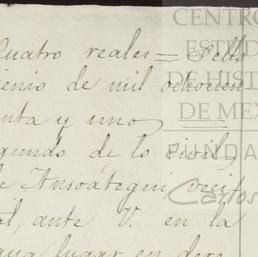 Cuatro reales = Sello
ienio de mil ochocien
enta y uno
egundo de lo civil,
e Ansoátegui, veci
al, ante V. en la
lugar en dere
CENTRO
ESTUD
DE HIST
DE MÉX
FUNDA
Carlos